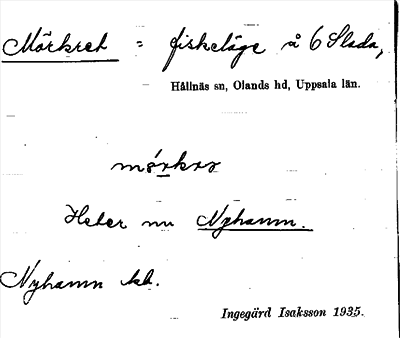 Mörkret = fiskeläge å 6 Slada,
Hållnäs sn, Olands hd, Uppsala län.
Heter nu Nyhamn.
Nyhamn kb.
Ingegärd Isaksson 1935.